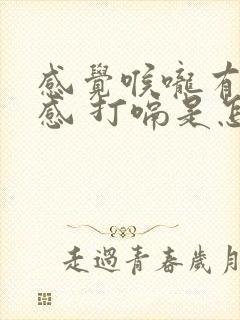 感覺喉嚨有
感 打嗝是怎
走過青春歲月